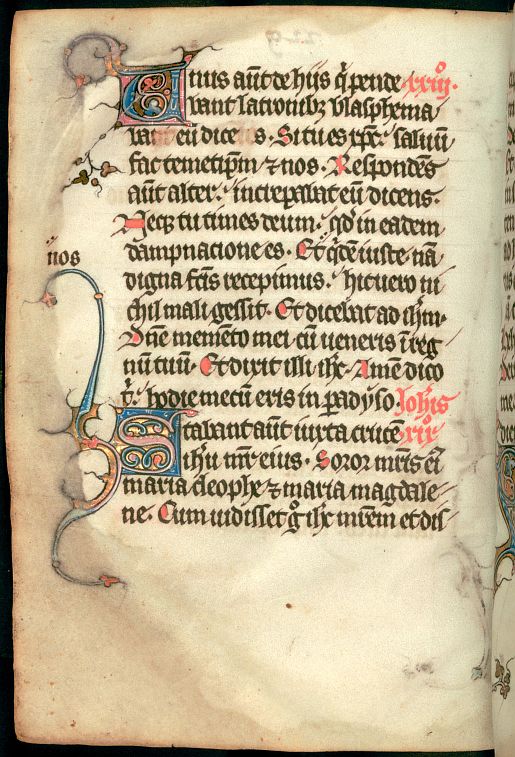 Unus aut de hijs q̄ pende xxiijº.
bant latronibz blasphema
bat eū dicens. Si tu es xp̄c. saluū
fac temetip̄m ⁊ nos. Respondēs
aūt alter. increpabat eū dicens.
Necz tu times deum. qd̄ in eadem
dampnacione es. Et qdē iuste nā
nos
digna fc̄is recepimus. hic uero ni
chil mali gessit. Et dicebat ad ih̄m.
Dn̄e memēto mei cū ueneris ī reg
nū tuū. Et dixit illi ih̄c. Amē dico
t̄. hodie mecū eris in paradyso Ioh̄is
Stabant aūt iuxta crucē xixº
ihū mr̄ eius. Soror mr̄is eiº
maria cleophe ⁊ maria magdale
ne. Cum uidisset gº ih̄c mr̄em et dis